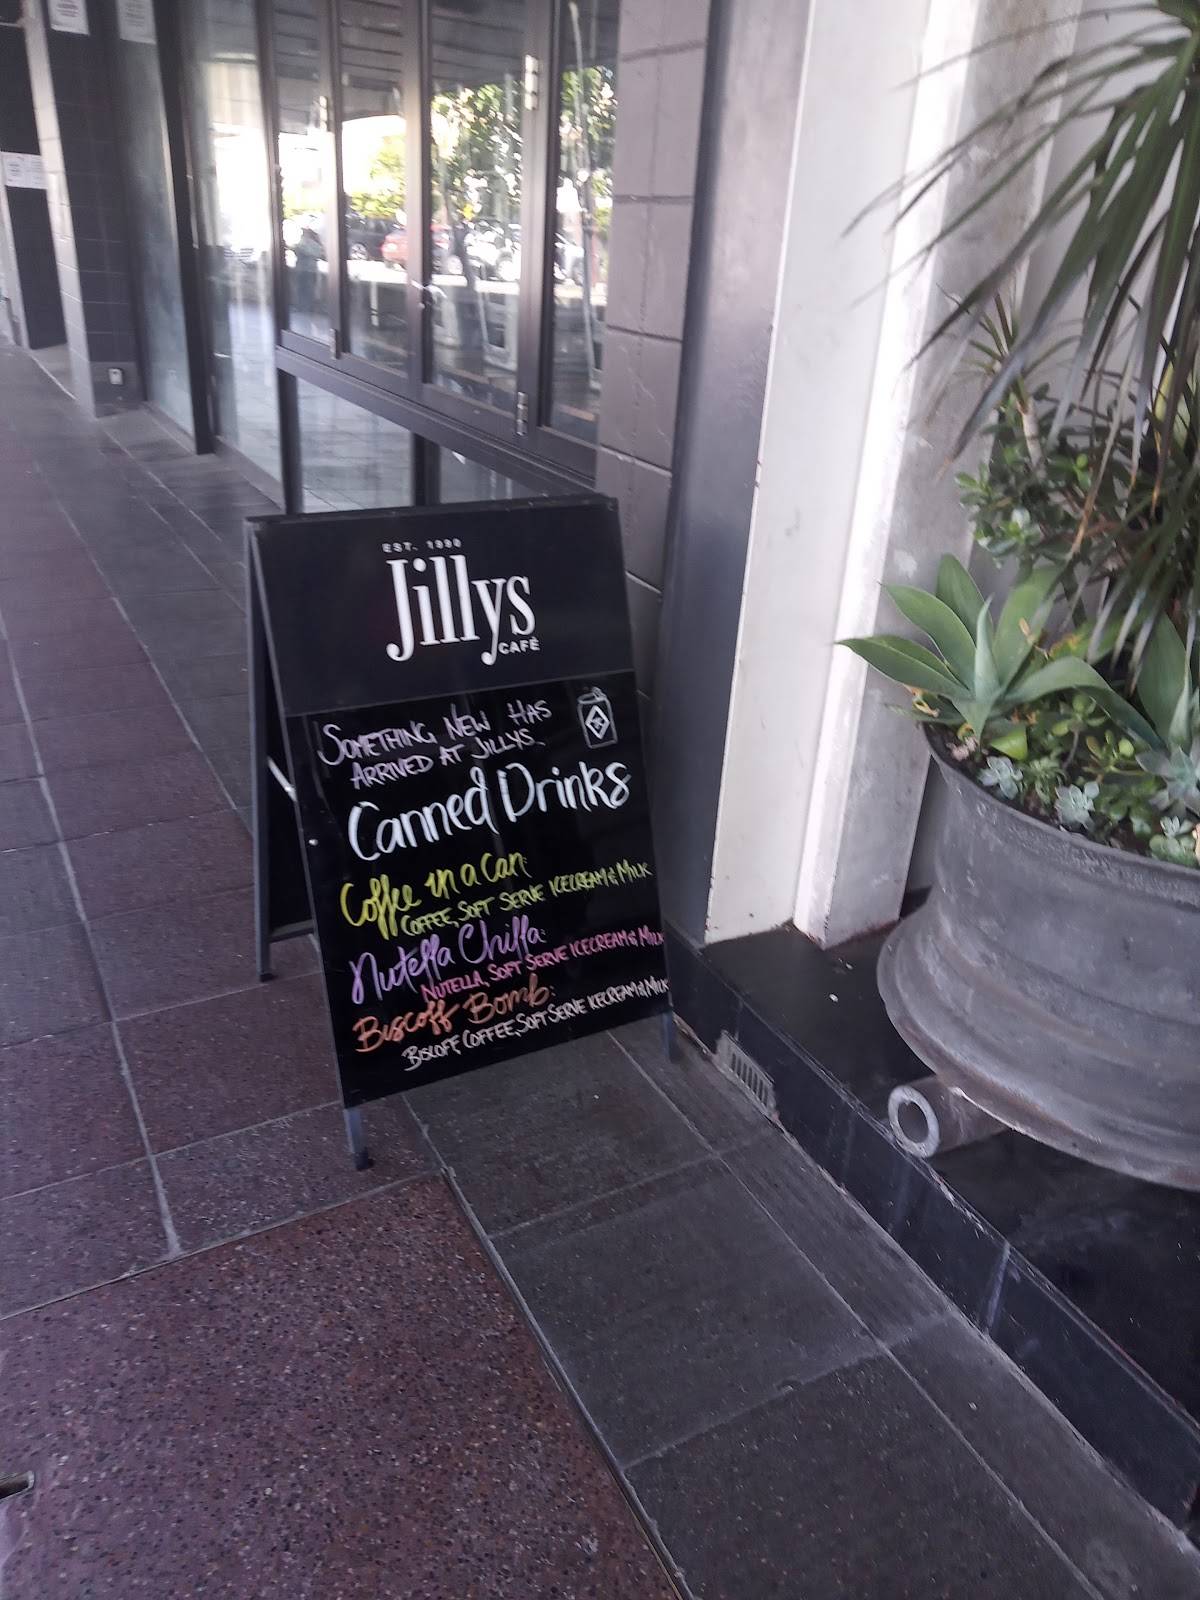 EST. 1990
Jillys
CAFÉ
SOMETHING NEW HAS
ARRIVED AT JILLYS.
Canned Drinks
Coffee in a can:
COFFEE, SOFT SERVE ICECREAM & MILK
Nutella Chilla:
NUTELLA, SOFT SERVE ICECREAM & MILK
Biscoff Bomb:
BISCOFF, COFFEE, SOFT SERVE ICECREAM & MILK